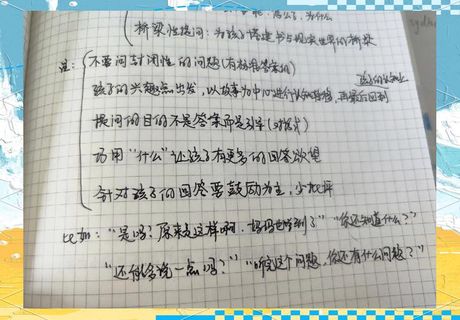 怎么会、为什么
桥梁性提问：为孩子搭建书与现实世界的桥梁
注：不要问封闭性的问题（有标准答案的）
孩子的认知上
孩子的兴趣点出发，以故事为中心进行认知，再最后回到
提问的目的不是答案而是引导（对话式）
巧用“什么”让孩子有更多的回答欲望
针对孩子的回答要鼓励为主，少批评
比如：“是吗？原来是这样啊，妈妈也学到了”“你还知道什么？”
“还能多说一点吗？”“听完这个问题，你还有什么问题？”